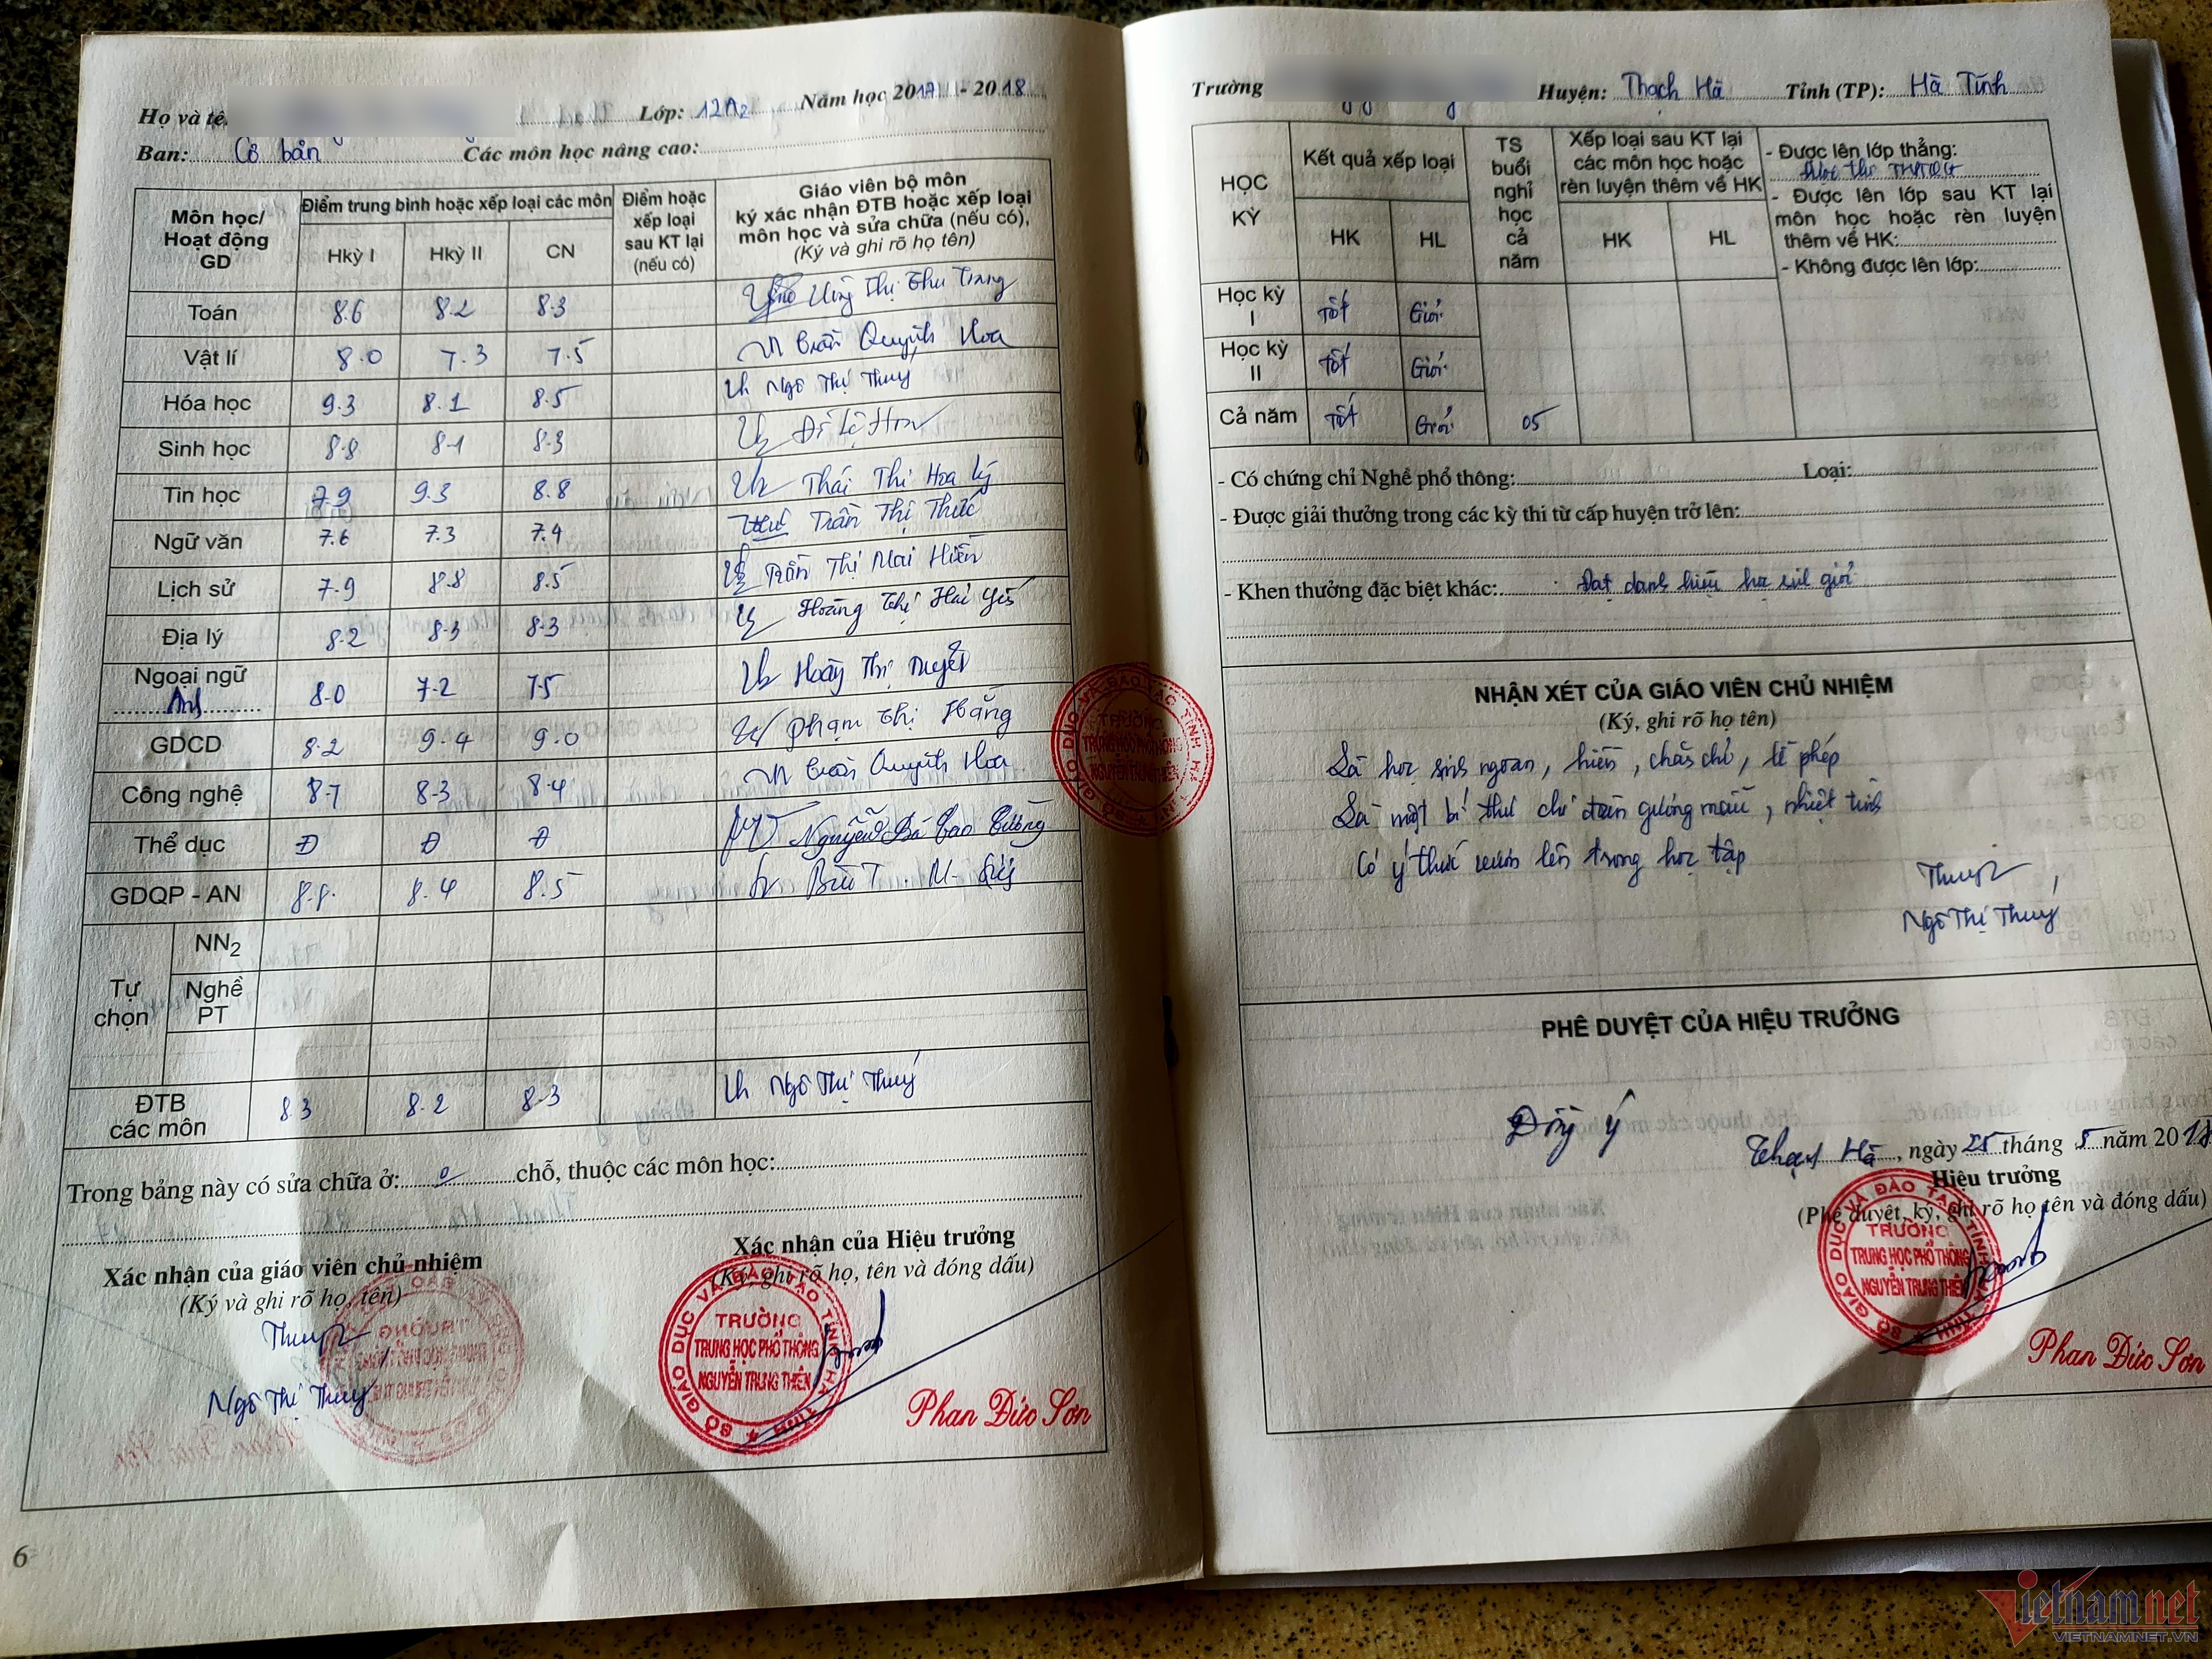 Họ và tên Lớp: 12A2 Năm học 2017 - 2018
Ban: Cơ bản Các môn học nâng cao:
Môn học/ Hoạt động GD
Điểm trung bình hoặc xếp loại các môn
Hkỳ I Hkỳ II CN
Điểm hoặc xếp loại sau KT lại (nếu có)
Giáo viên bộ môn
ký xác nhận ĐTB hoặc xếp loại
môn học và sửa chữa (nếu có),
(Ký và ghi rõ họ tên)
Toán 8.6 8.2 8.3 Thị Thu Trang
Vật lí 8.0 7.3 7.5 Trần Quỳnh Hoa
Hóa học 9.3 8.1 8.5 Ngô Thị Thuý
Sinh học 8.8 8.1 8.3
Tin học 7.9 9.3 8.8 Thái Thị Hoa Lý
Ngữ văn 7.6 7.3 7.4 Trần Thị Thức
Lịch sử 7.9 8.8 8.5 Trần Thị Mai Hiền
Địa lý 8.2 8.3 8.3 Hoàng Thị Hải Yến
Ngoại ngữ Anh 8.0 7.2 7.5 Hoàng Thị Duyệt
GDCD 8.2 9.4 9.0 Phạm Thị Hằng
Công nghệ 8.7 8.3 8.4 Trần Quỳnh Hoa
Thể dục Đ Đ Đ Nguyễn Bá Cao Cường
GDQP - AN 8.8 8.4 8.5
Tự chọn
NN2
Nghề PT
ĐTB các môn 8.3 8.2 8.3 Ngô Thị Thuý
Trong bảng này có sửa chữa ở: 0 chỗ, thuộc các môn học:
Xác nhận của giáo viên chủ nhiệm
(Ký và ghi rõ họ, tên)
Ngô Thị Thuý
Xác nhận của Hiệu trưởng
(Ký, ghi rõ họ, tên và đóng dấu)
SỞ GIÁO DỤC VÀ ĐÀO TẠO TỈNH HÀ TĨNH
TRƯỜNG
TRUNG HỌC PHỔ THÔNG
NGUYỄN TRUNG THIÊN
Phan Đức Sơn
6
SỞ GIÁO DỤC VÀ ĐÀO TẠO TỈNH HÀ TĨNH
TRƯỜNG
TRUNG HỌC PHỔ THÔNG
NGUYỄN TRUNG THIÊN
Trường Huyện: Thạch Hà Tỉnh (TP): Hà Tĩnh
HỌC KỲ
Kết quả xếp loại
HK HL
TS buổi nghỉ học cả năm
Xếp loại sau KT lại
các môn học hoặc
rèn luyện thêm về HK
HK HL
- Được lên lớp thẳng:
thi THPTQG
- Được lên lớp sau KT lại
môn học hoặc rèn luyện
thêm về HK:
- Không được lên lớp:
Học kỳ I Tốt Giỏi
Học kỳ II Tốt Giỏi
Cả năm Tốt Giỏi 05
- Có chứng chỉ Nghề phổ thông: Loại:
- Được giải thưởng trong các kỳ thi từ cấp huyện trở lên:
- Khen thưởng đặc biệt khác: Đạt danh hiệu học sinh giỏi
NHẬN XÉT CỦA GIÁO VIÊN CHỦ NHIỆM
(Ký, ghi rõ họ tên)
Là học sinh ngoan, hiền, chăm chỉ, lễ phép
Là một bí thư chi đoàn gương mẫu, nhiệt tình
Có ý thức vươn lên trong học tập
Ngô Thị Thuý
PHÊ DUYỆT CỦA HIỆU TRƯỞNG
Đồng ý
Thạch Hà, ngày 25 tháng 5 năm 2018
Hiệu trưởng
(Phê duyệt, ký, ghi rõ họ tên và đóng dấu)
SỞ GIÁO DỤC VÀ ĐÀO TẠO TỈNH HÀ TĨNH
TRƯỜNG
TRUNG HỌC PHỔ THÔNG
NGUYỄN TRUNG THIÊN
Phan Đức Sơn
Vietnamnet
VIETNAMNET.VN